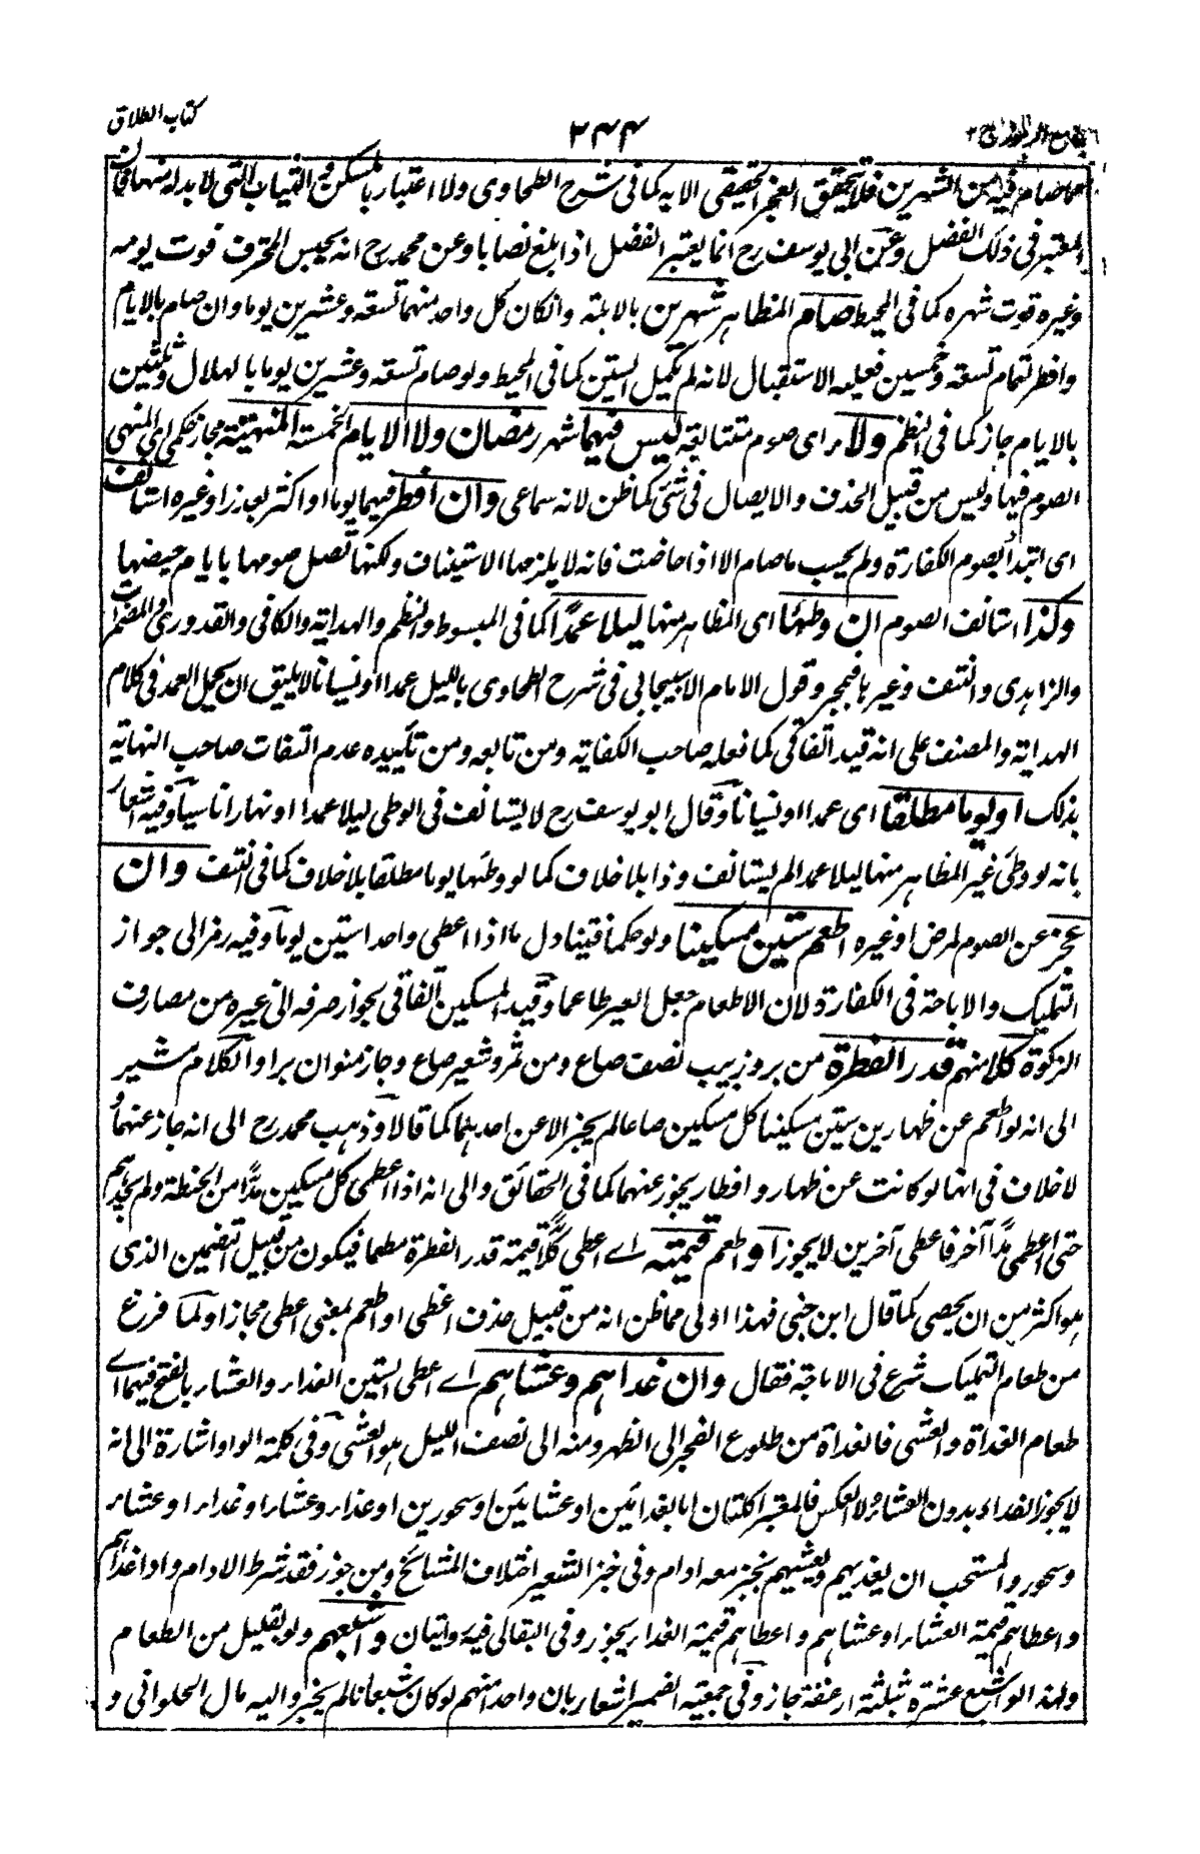 جامع الرموز ج ٢ ٣٤٤ كتاب الطلاق
ما صام فيه من الشهرين فلا يتحقق العجز الحقيقى الا به كما فى شرح الطحاوى ولا اعتبار بالمسكن و الثياب التى لا بد له منها فان
المعتبر فى ذلك الفضل وعن ابى يوسف رح انما يعتبر الفضل اذا بلغ نصابا وعن محمد رح انه يحبس المحترف قوت يومه
وغيره قوت شهره كما فى المحيط صام المظاهر شهرين بالاهلة وانكان كل واحد منهما تسعة وعشرين يوما وان صام بالايام
وافطر لتمام تسعة وخمسين فعليه الاستقبال لانه لم تكمل الستين كما فى المحيط ولو صام تسعة وعشرين يوما بالهلال وثلثين
بالايام جاز كما فى النظم ولاء اى صوم متتابعة ليس فيهما شهر رمضان ولا الايام الخمسة المنهية مجاز حكمى اى المنهى
الصوم فيها وليس من قبيل الحذف والايصال فى شئ كما ظن لانه سماعى وان افطر فيهما يوما او اكثر بعذر او غيره استانف
اى ابتدأ بصوم الكفارة ولم يحسب ما صام الا اذا حاضت فانه لا يلزمها الاستيناف ولكنها تصل صومها بايام حيضها
وكذا استانف الصوم ان وطئها اى المظاهر منها ليلا عمدا كما فى المبسوط والنظم والهداية والكافى والقدورى والمضمرات
والزاهدى والنتف وغيرها فيجر وقول الامام الاسبيجابى فى شرح الطحاوى بالليل عمدا او نسيانا لا يليق ان يحمل العمد فى كلام
الهداية والمصنف على انه قيد اتفاقى كما فعله صاحب الكفاية ومن تابعه ومن تأييده عدم التفات صاحب النهاية
بذلك او يوما مطلقا اى عمدا او نسيانا وقال ابو يوسف رح لا يستانف فى الوطى ليلا عمدا او نهارا ناسيا وفيه اشعار
بانه لو وطئ غير المظاهر منها ليلا عمدا لم يستانف وذا بلا خلاف كما لو وطئها يوما مطلقا بلا خلاف كما فى النتف وان
عجز عن الصوم لمرض او غيره اطعم ستين مسكينا ولو حكما فيتناول ما اذا اعطى واحدا ستين يوما وفيه رمز الى جواز
التمليك والاباحة فى الكفارة ولان الاطعام جعل الغير طاعما وقيد المسكين اتفاقى لجواز صرفه الى غيره من مصارف
الزكوة كلا منهم قدر الفطرة من بر وزبيب نصف صاع ومن تمر وشعير صاع وجاز منوان برا والكلام مشير
الى انه لو اطعم عن ظهارين ستين مسكينا كل مسكين صاعا لم يجز الا عن احدهما كما قالا وذهب محمد رح الى انه جاز عنهما و
لا خلاف فى انها لو كانت عن ظهار و افطار يجوز عنهما كما فى الحقائق والى انه اذا اعطى كل مسكين مدا من الحنطة ولم يجدهم
حتى اعطى مدا آخر فاعطى آخرين لا يجوز او اطعم قيمته اے اعطى كلا قيمة قدر الفطرة مطعما فيكون من قبيل التضمين الذى
هو اكثر من ان يحصى كما قال ابن جنى فهذا اولى مما ظن انه من قبيل حذف اعطى او اطعم بمعنى اعطى مجازا ولما فرغ
من طعام التمليك شرع فى الاباحة فقال وان غداهم وعشاهم اے اعطى الستين الغداء والعشاء بالفتح فيهما اے
طعام الغداة والعشى فالغداة من طلوع الفجر الى الظهر ومنه الى نصف الليل هو العشى وفى كلمة الواو اشارة الى انه
لا يجوز الغداء بدون العشاء ولا العكس فالمعتبر اكلتان اما بغدائين او عشائين او سحورين او غداء وعشاء او غداء او عشاء
وسحور والمستحب ان يغديهم ويعشيهم بخبز معه ادام وفى خبز الشعير اختلاف المشائخ ومن جوز فقد شرط الادام واذا غداهم
واعطاهم قيمة العشاء او عشاهم واعطاهم قيمة الغداء يجوز وفى البقالى فيه روايتان واشبعهم ولو بقليل من الطعام
ولهذا لو اشبع عشرة بثلثة ارغفة جاز وفى جمعية الضمير اشعار بان واحدا منهم لو كان شبعانا لم يجز واليه مال الحلوانى و